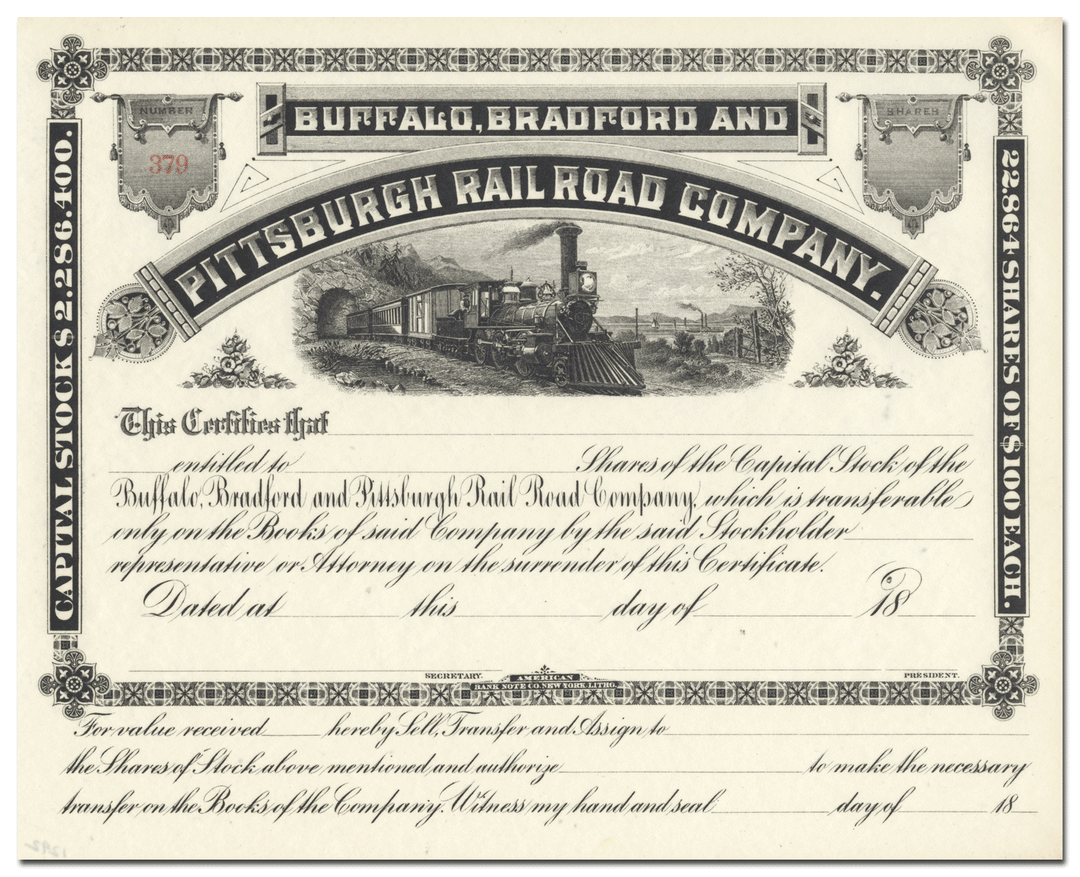 NUMBER
379
SHARES
BUFFALO, BRADFORD AND
PITTSBURGH RAIL ROAD COMPANY.
CAPITAL STOCK $2.286.400.
22.864 SHARES OF $100 EACH.
This Certifies that
entitled to Shares of the Capital Stock of the
Buffalo, Bradford and Pittsburgh Rail Road Company, which is transferable
only on the Books of said Company by the said Stockholder
representative or Attorney on the surrender of this Certificate.
Dated at this day of 18
SECRETARY.
PRESIDENT.
AMERICAN
BANK NOTE CO. NEW YORK. LITHO.
For value received hereby Sell, Transfer and Assign to
the Shares of Stock above mentioned and authorize to make the necessary
transfer on the Books of the Company. Witness my hand and seal day of 18